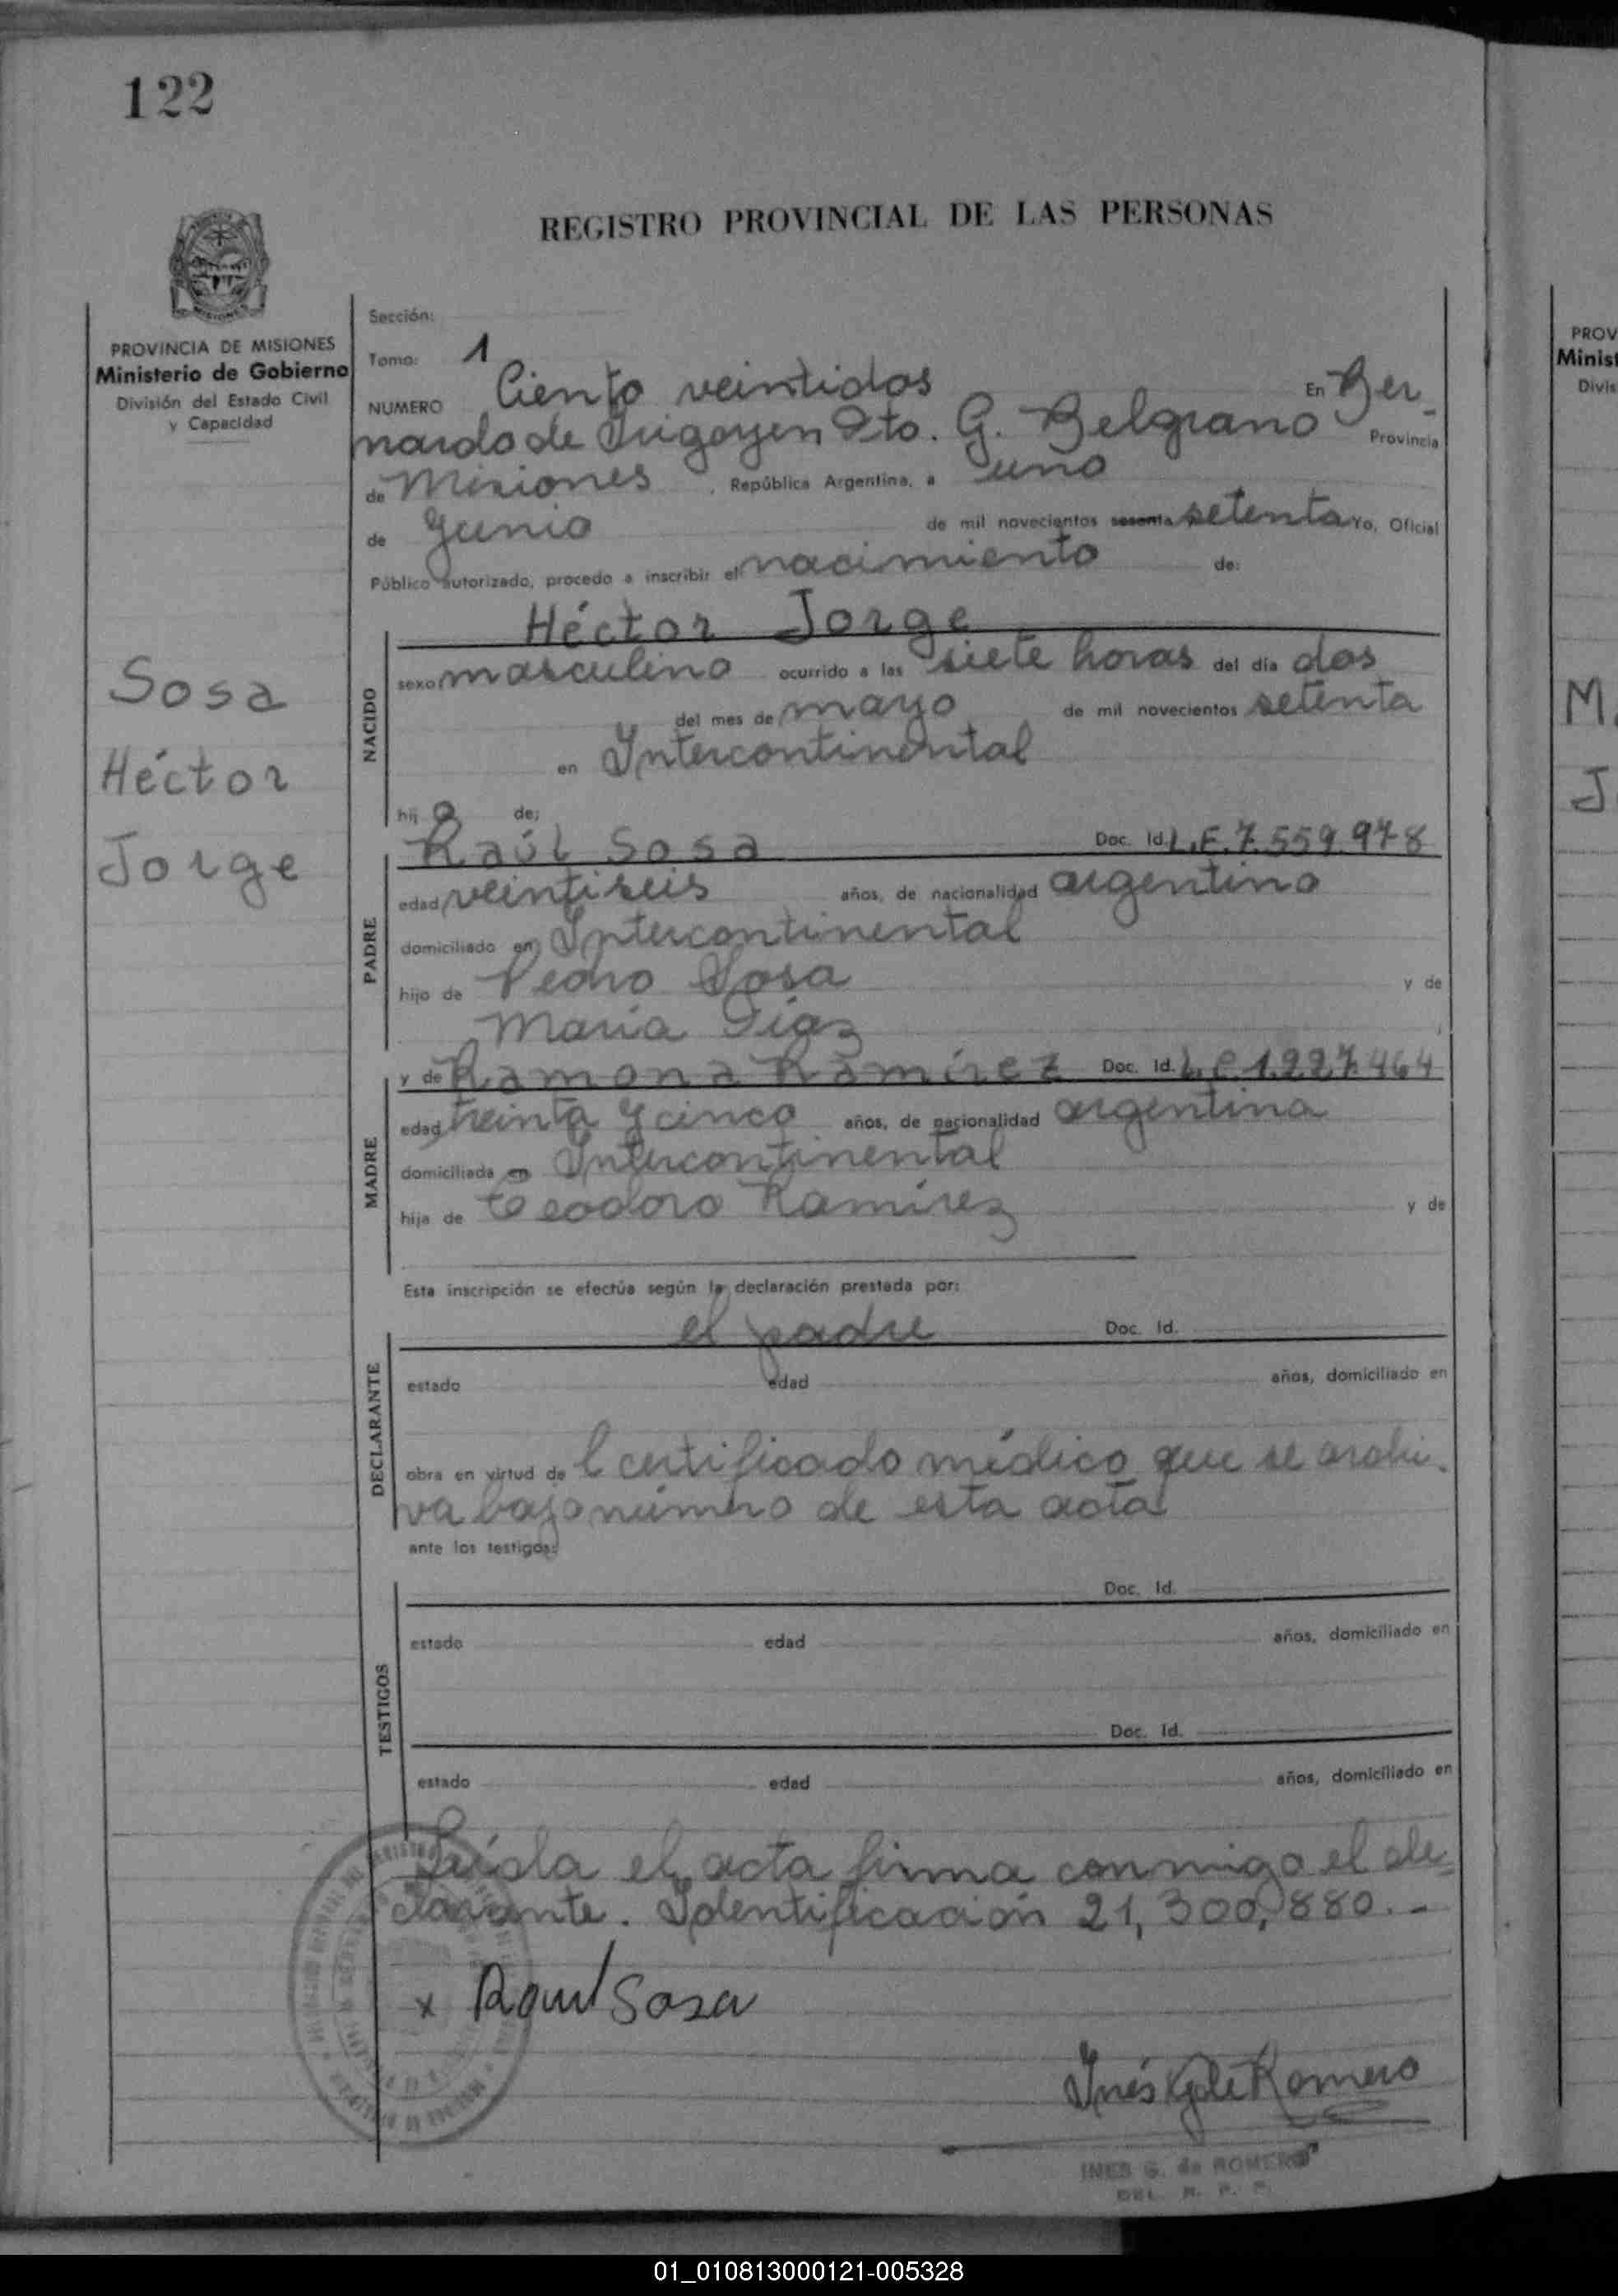 122
REGISTRO PROVINCIAL DE LAS PERSONAS
PROVINCIA DE MISIONES
Ministerio de Gobierno
División del Estado Civil
y Capacidad
Sosa
Héctor
Jorge
Sección:
Tomo: 1
NUMERO Ciento veintidos En Ber-
nardo de Irigoyen Dto. G. Belgrano Provincia
de Misiones, República Argentina, a uno
de Junio de mil novecientos sesenta setenta Yo, Oficial
Público autorizado, procedo a inscribir el nacimiento de:
NACIDO
Héctor Jorge
sexo masculino ocurrido a las siete horas del día dos
del mes de mayo de mil novecientos setenta
en Intercontinental
hijo de:
PADRE
Raúl Sosa Doc. Id. L.E. 7.559.978
edad veintiseis años, de nacionalidad argentino
domiciliado en Intercontinental
hijo de Pedro Sosa y de
María Díaz
MADRE
y de Ramona Ramírez Doc. Id. L.C. 1.227.464
edad treinta y cinco años, de nacionalidad argentina
domiciliada en Intercontinental
hija de Teodoro Ramírez y de
Esta inscripción se efectúa según la declaración prestada por:
DECLARANTE
el padre Doc. Id.
estado edad años, domiciliado en
obra en virtud del certificado médico que se archi-
va bajo número de esta acta
ante los testigos:
TESTIGOS
Doc. Id.
estado edad años, domiciliado en
Doc. Id.
estado edad años, domiciliado en
Leída el acta firma conmigo el de-
clarante. Identificación 21,300,880.-
x Raul Sosa
Inés G de Romero
INES G. de ROMERO
DEL. R. P. P.
PROV
Minist
Divis
M
J
01_010813000121-005328